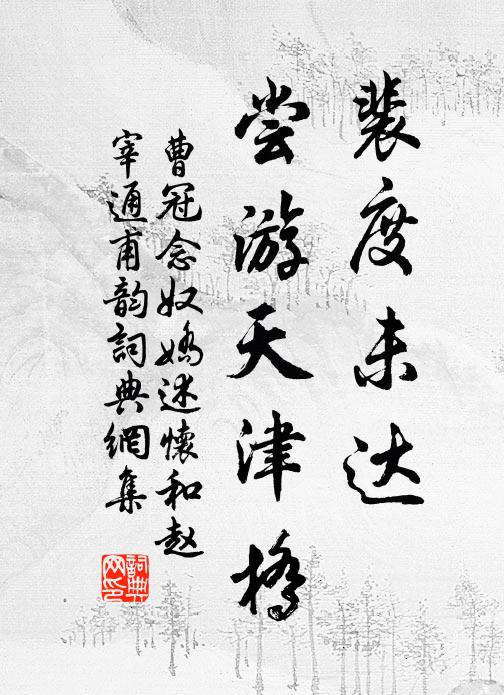 裴度未达
尝游天津桥
曹冠念奴娇述怀和赵
宰通甫韵詞典網集
詞典网印